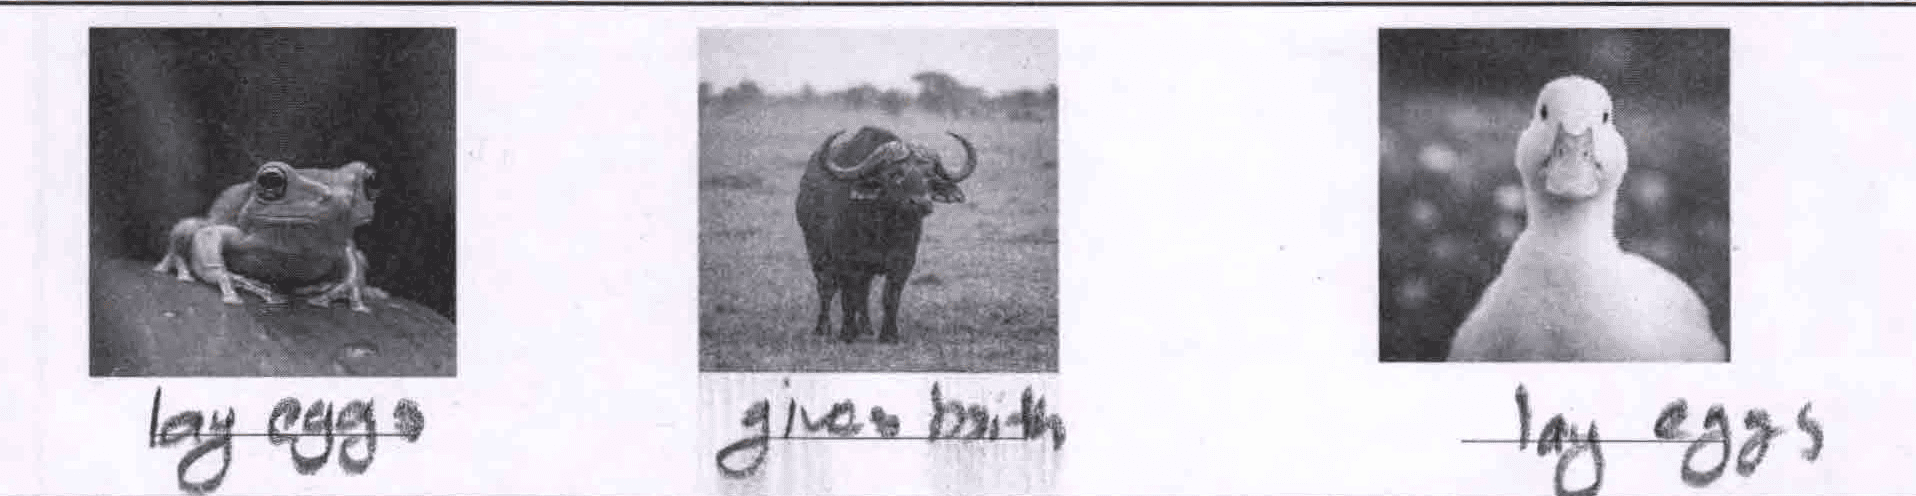 lay eggs
gives brith
lay eggs